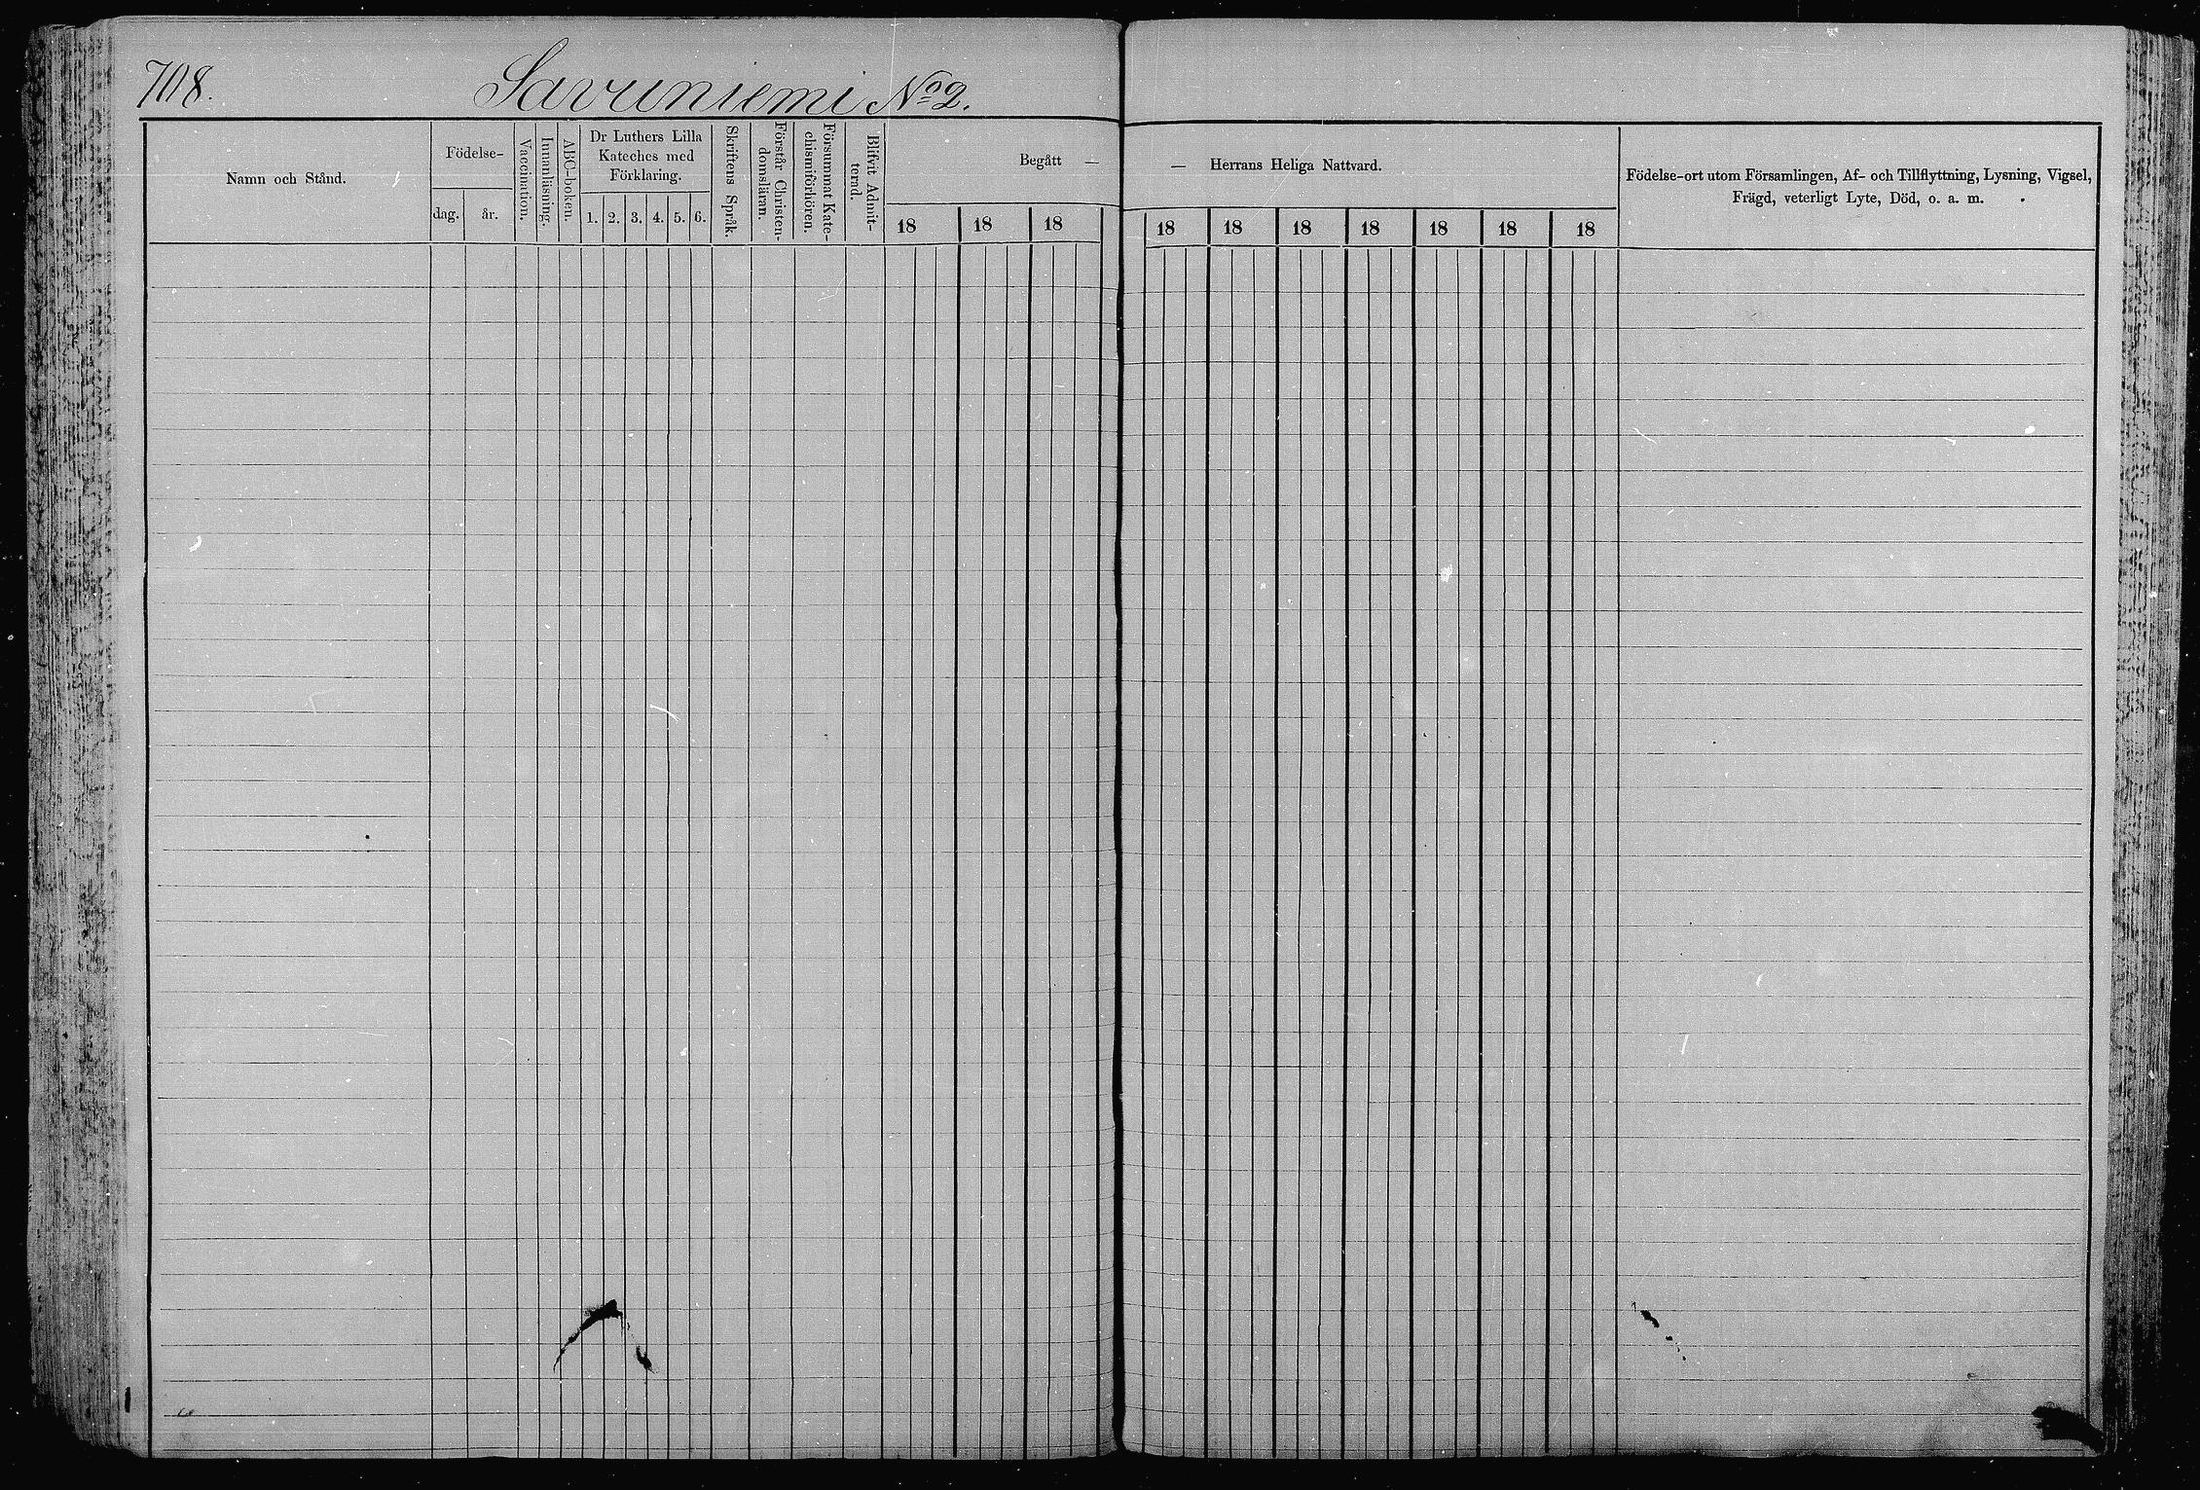 708. Savuniemi No 2.
Namn och Stånd.
Födelse-
dag. år.
Vaccination.
Innanläsning.
ABC-boken.
Dr Luthers Lilla
Kateches med
Förklaring.
1. 2. 3. 4. 5. 6.
Skriftens Språk.
Förstår Christen-
domsläran.
Försummat Kate-
chismiförhören.
Blifvit Admit-
terad.
Begått —
18 18 18
— Herrans Heliga Nattvard.
18 18 18 18 18 18 18
Födelse-ort utom Församlingen, Af- och Tillflyttning, Lysning, Vigsel,
Frägd, veterligt Lyte, Död, o. a. m.